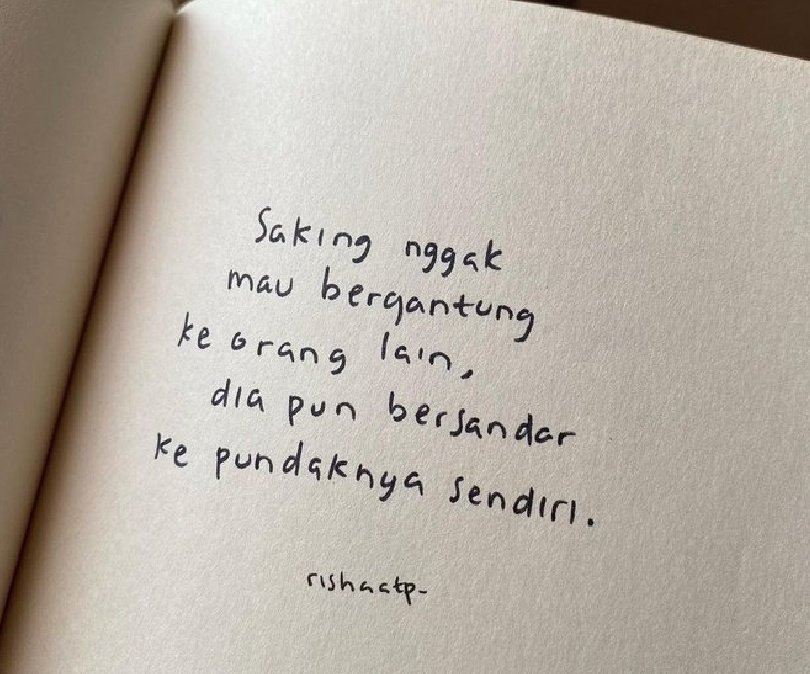 Saking nggak
mau bergantung
ke orang lain,
dia pun bersandar
ke pundaknya sendiri.
rishaatp-